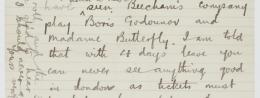 have seen Bechams company
play Boris Godounov and
Madame Butterfly. I am told
that with 4 days leave you
can never see anything good
in London as tickets must